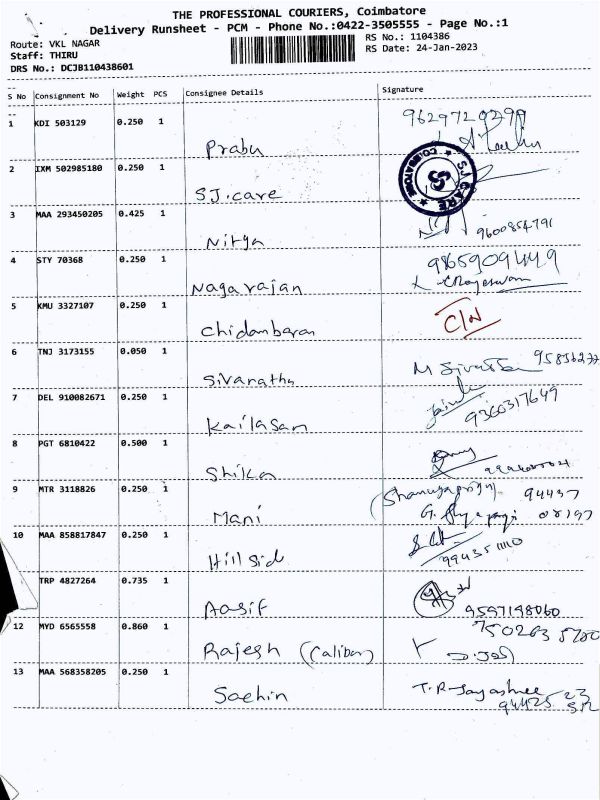 THE PROFESSIONAL COURIERS, Coimbatore
Delivery Runsheet - PCM - Phone No.:0422-3505555 - Page No.:1
Route: VKL NAGAR RS No.: 1104386
Staff: THIRU RS Date: 24-Jan-2023
DRS No.: DCJB110438601
S No Consignment No Weight PCS Consignee Details Signature
1 KDI 503129 0.250 1 Prabu 9629729299
2 IXM 502985180 0.250 1 S.J.care S.J. CARE COIMBATORE
3 MAA 293450205 0.425 1 Nitya 9600854791
4 STY 70368 0.250 1 Nagarajan 9865909449
5 KMU 3327107 0.250 1 Chidambaran C/N
6 TNJ 3173155 0.050 1 Sivanatha M Siva
7 DEL 910082671 0.250 1 Kailasan 9360317649
8 PGT 6810422 0.500 1 Shika
9 MTR 3118826 0.250 1 Mani 94437
G. 08197
10 MAA 858817847 0.250 1 Hillsid
TRP 4827264 0.735 1 Aasif 9597198060
12 MYD 6565558 0.860 1 Rajesh (Caliber)
13 MAA 568358205 0.250 1 Sachin T.R. Jayashree